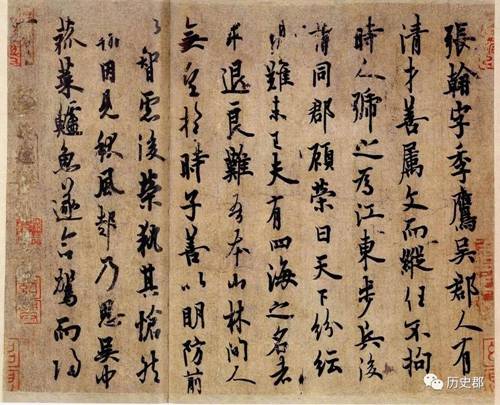 張翰字季鷹吳郡人有
清才善屬文而縱任不拘
時人號之為江東步兵後
謂同郡顧榮曰天下紛紜
禍難未已夫有四海之名者
求退良難吾本山林間人
無望於時子善以明防前
以智慮後榮執其愴然
翰因見秋風起乃思吳中
菰菜鱸魚遂命駕而歸
历史郡